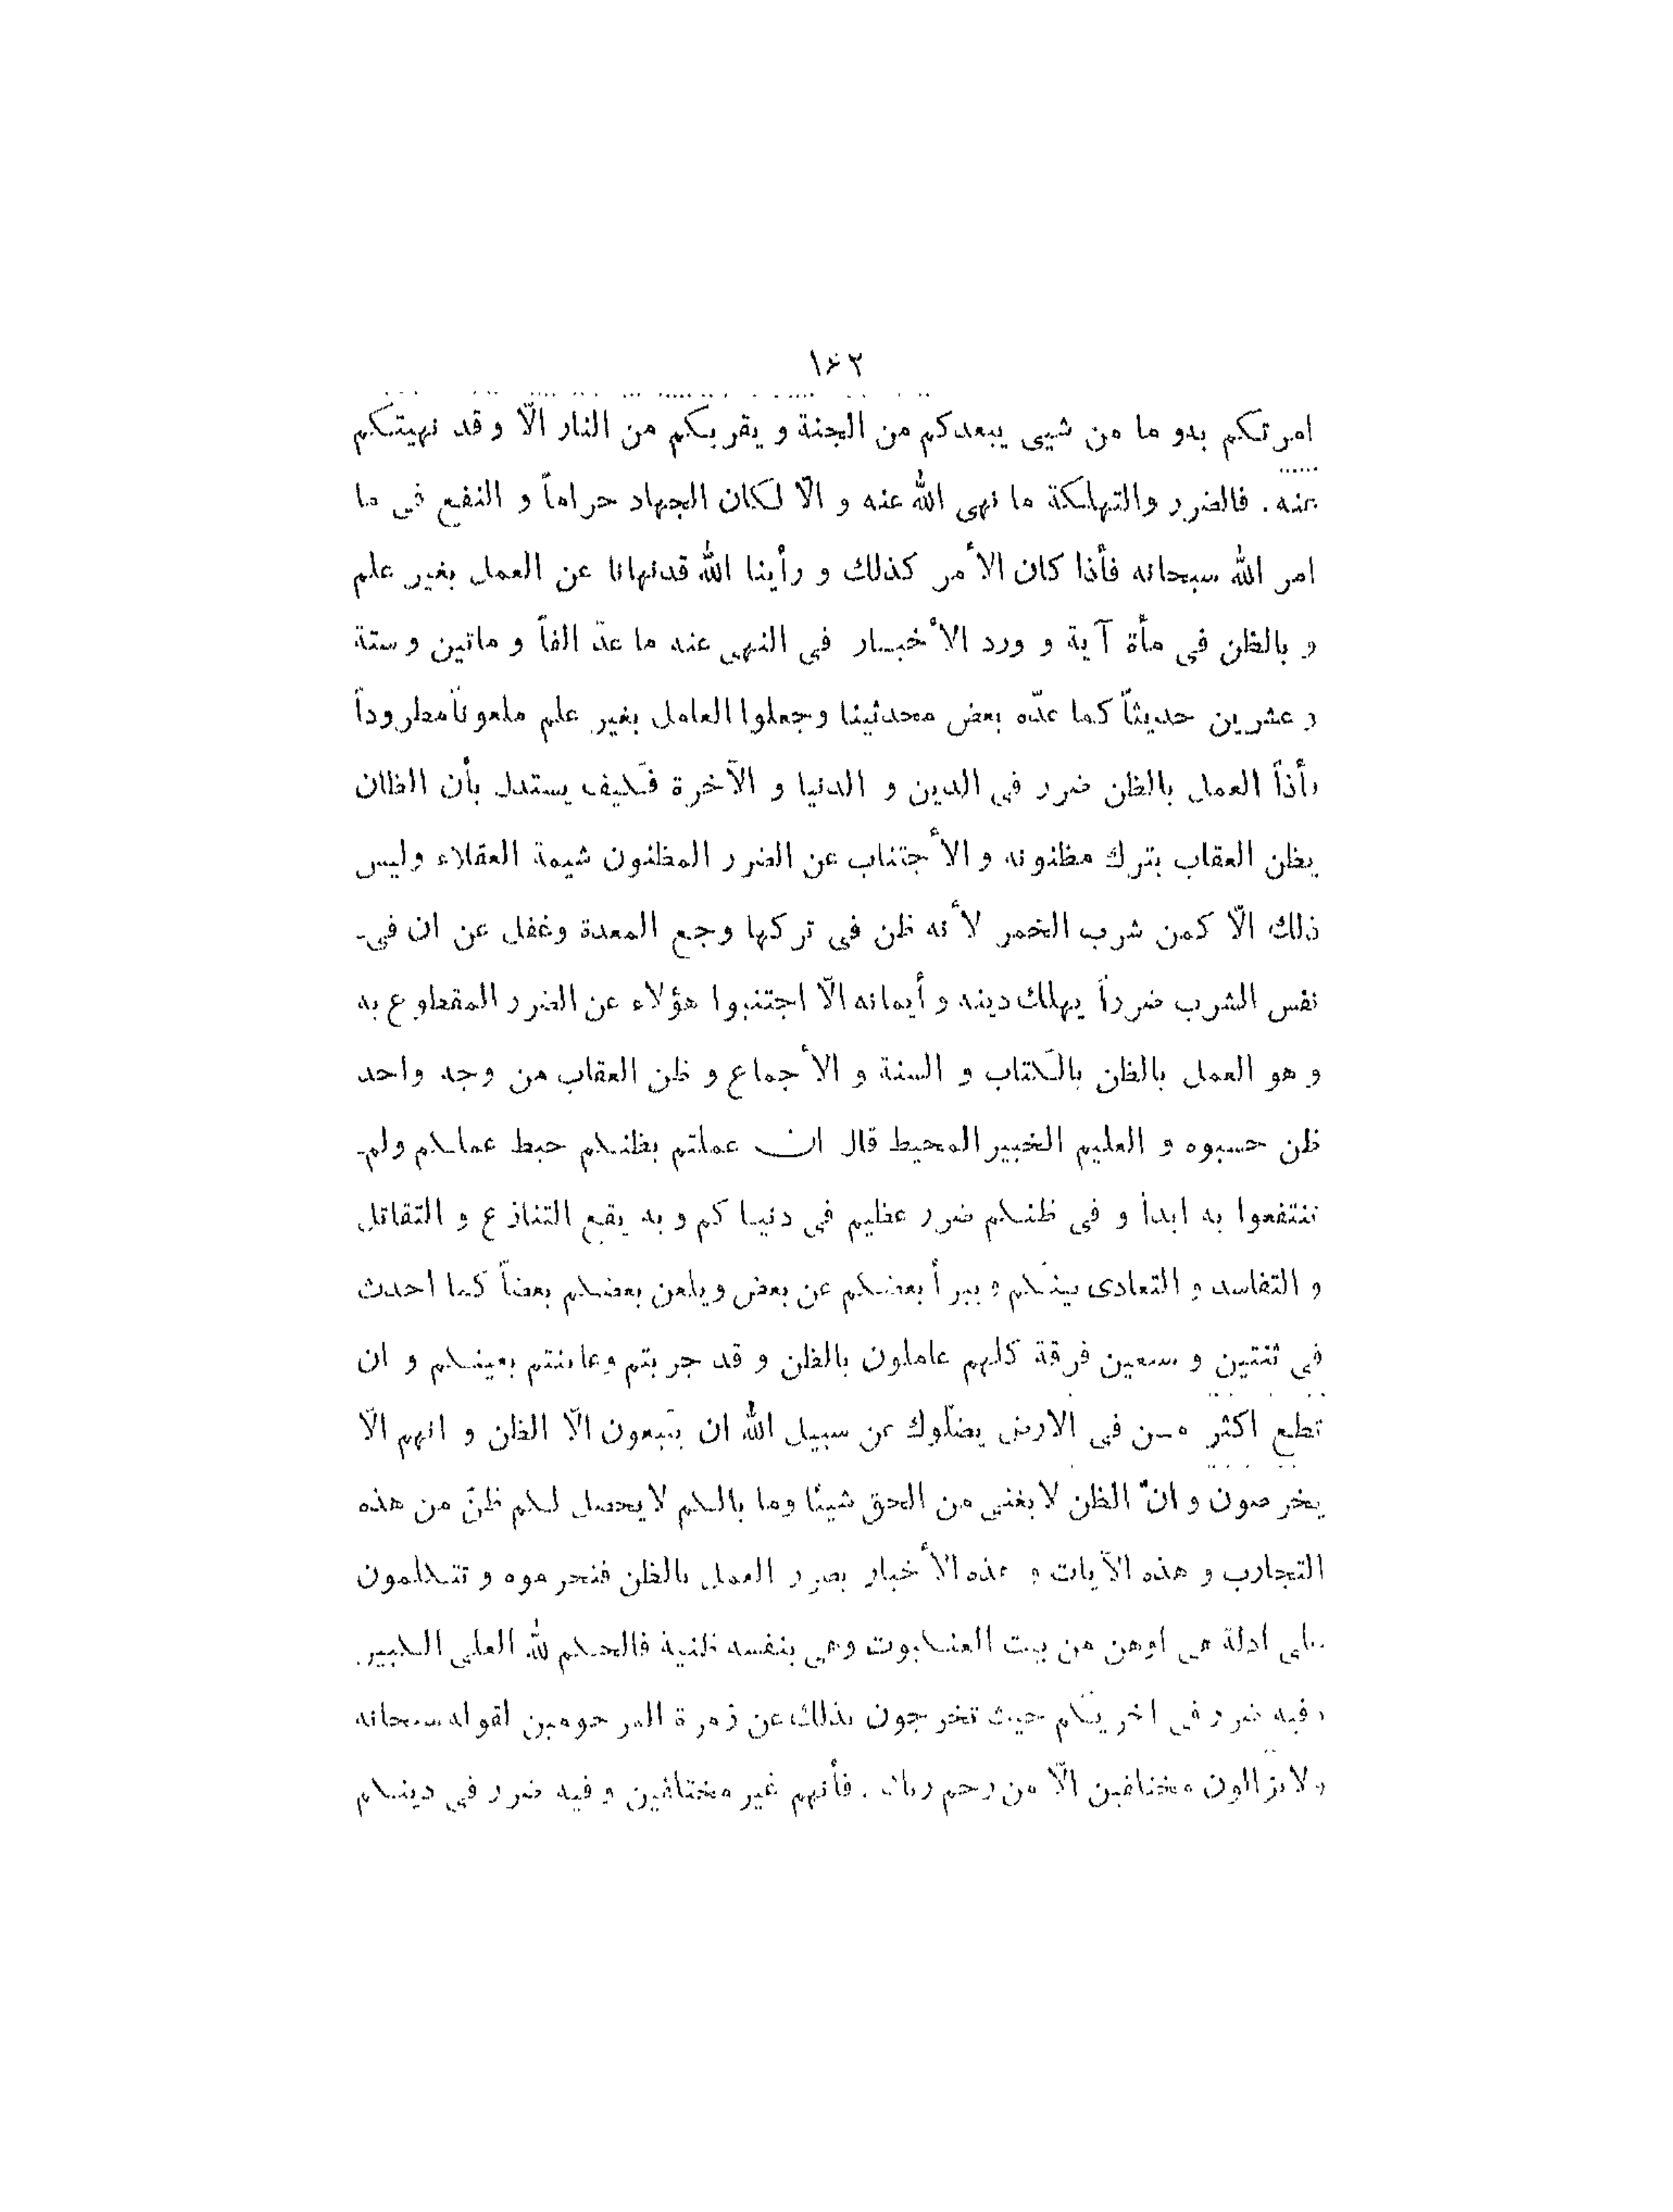 ۱۶۲
امرتكم به و ما من شيى يبعدكم من الجنة و يقربكم من النار الّا و قد نهيتكم
عنه . فالضرر والتهلكة ما نهى الله عنه و الّا لكان الجهاد حراماً و النفع فى ما
امر الله سبحانه فأذا كان الأمر كذلك و رأينا الله قدنهانا عن العمل بغير علم
و بالظن فى مأة آية و ورد الأخبار فى النهى عنه ما عدّ الفاً و ماتين و ستة
و عشرين حديثاً كما عدّه بعض محدثينا وجعلوا العامل بغير علم ملعوناً مطروداً
فأذاً العمل بالظن ضرر فى الدين و الدنيا و الآخرة فكيف يستدل بأن الظان
يظن العقاب بترك مظنونه و الأجتناب عن الضرر المظنون شيمة العقلاء وليس
ذلك الّا كمن شرب الخمر لأنه ظن فى تركها وجع المعدة وغفل عن ان فى-
نفس الشرب ضرراً يهلك دينه و أيمانه الّا اجتنبوا هؤلاء عن الضرر المقطوع به
و هو العمل بالظن بالكتاب و السنة و الأجماع و ظن العقاب من وجه واحد
ظن حسبوه و العليم الخبير المحيط قال ان عملتم بظنكم حبط عملكم ولم-
تنتفعوا به ابداً و فى ظنكم ضرر عظيم فى دنياكم و به يقع التنازع و التقاتل
و التفاسد و التعادى بينكم و يبرأ بعضكم عن بعض ويلعن بعضكم بعضاً كما احدث
فى ثنتين و سبعين فرقة كلهم عاملون بالظن و قد جربتم وعاينتم بعينكم و ان
تطع اكثر من فى الارض يضلّوك عن سبيل الله ان يتّبعون الّا الظن و انهم الّا
يخرصون و انّ الظن لا يغنى من الحق شيئا وما بالكم لا يحصل لكم ظنّ من هذه
التجارب و هذه الآيات و هذه الأخبار بضرر العمل بالظن فتحرموه و تتكلمون
على ادلة هى اوهن من بيت العنكبوت وهى بنفسه ظنية فالحكم لله العلى الكبير.
و فيه ضرر فى اخريكم حيث تخرجون بذلك عن زمرة المرحومين لقوله سبحانه
ولا يزالون مختلفين الّا من رحم ربك . فأنهم غير مختلفين و فيه ضرر فى دينكم